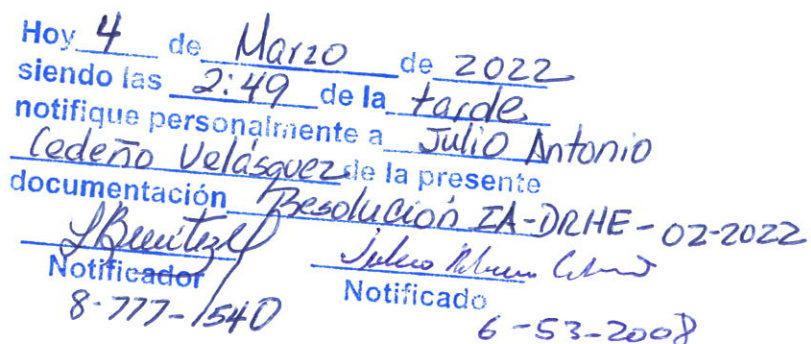 Hoy 4 de Marzo de 2022
siendo las 2:49 de la tarde
notifique personalmente a Julio Antonio
Cedeño Velásquez de la presente
documentación Resolución IA-DRHE-02-2022
Notificador Notificado
8-777-1540 6-53-2008